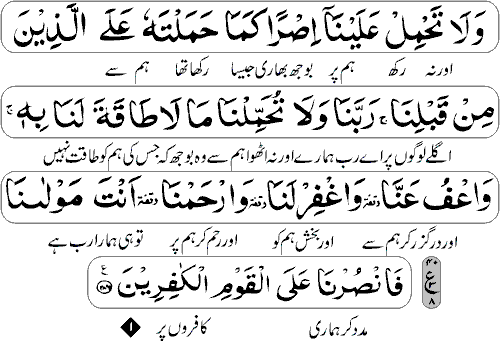 وَلَا تَحْمِلْ عَلَيْنَآ اِصْرًا كَمَا حَمَلْتَهٗ عَلَى الَّذِيْنَ
اور نہ رکھ ہم پر بوجھ بھاری جیسا رکھا تھا ہم سے
مِنْ قَبْلِنَا ۚ رَبَّنَا وَلَا تُحَمِّلْنَا مَا لَا طَاقَةَ لَنَا بِهٖ ۚ
اگلے لوگوں پر اے رب ہمارے اور نہ اٹھوا ہم سے وہ بوجھ کہ جس کی ہم کو طاقت نہیں
وَاعْفُ عَنَّا وقفہ وَاغْفِرْ لَنَا وقفہ وَارْحَمْنَا وقفہ اَنْتَ مَوْلٰىنَا
اور درگزر کر ہم سے اور بخش ہم کو اور رحم کر ہم پر تو ہی ہمارا رب ہے
فَانْصُرْنَا عَلَى الْقَوْمِ الْكٰفِرِيْنَ ۲۸۶ ع ۴۰ ع ۳ ۸
مدد کر ہماری کافروں پر ۱